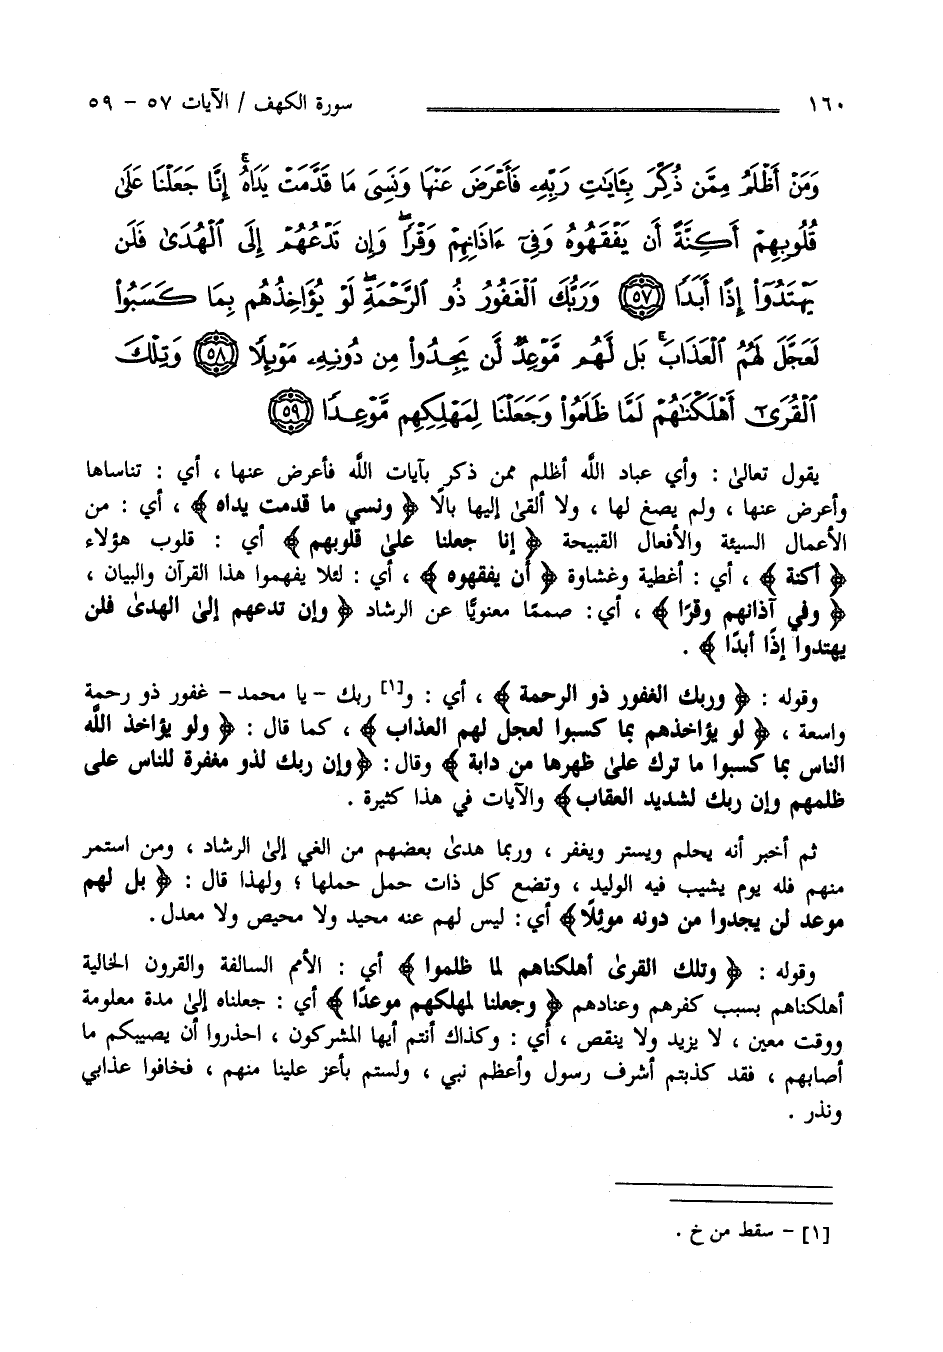 ١٦٠ سورة الكهف / الآيات ٥٧ - ٥٩
وَمَنْ أَظْلَمُ مِمَّن ذُكِّرَ بِـَٔايَٰتِ رَبِّهِۦ فَأَعْرَضَ عَنْهَا وَنَسِىَ مَا قَدَّمَتْ يَدَاهُ ۚ إِنَّا جَعَلْنَا عَلَىٰ
قُلُوبِهِمْ أَكِنَّةً أَن يَفْقَهُوهُ وَفِىٓ ءَاذَانِهِمْ وَقْرًا ۖ وَإِن تَدْعُهُمْ إِلَى ٱلْهُدَىٰ فَلَن
يَهْتَدُوٓا۟ إِذًا أَبَدًا ﴿٥٧﴾ وَرَبُّكَ ٱلْغَفُورُ ذُو ٱلرَّحْمَةِ ۖ لَوْ يُؤَاخِذُهُم بِمَا كَسَبُوا۟
لَعَجَّلَ لَهُمُ ٱلْعَذَابَ ۚ بَل لَّهُم مَّوْعِدٌ لَّن يَجِدُوا۟ مِن دُونِهِۦ مَوْئِلًا ﴿٥٨﴾ وَتِلْكَ
ٱلْقُرَىٰٓ أَهْلَكْنَٰهُمْ لَمَّا ظَلَمُوا۟ وَجَعَلْنَا لِمَهْلِكِهِم مَّوْعِدًا ﴿٥٩﴾
يقول تعالىٰ : وأي عباد اللَّه أظلم ممن ذكر بآيات اللَّه فأعرض عنها ، أي : تناساها
وأعرض عنها ، ولم يصغ لها ، ولا ألقىٰ إليها بالًا ﴿ ونسي ما قدمت يداه ﴾ ، أي : من
الأعمال السيئة والأفعال القبيحة ﴿ إنا جعلنا علىٰ قلوبهم ﴾ أي : قلوب هؤلاء
﴿ أكنة ﴾ ، أي : أغطية وغشاوة ﴿ أن يفقهوه ﴾ ، أي : لئلا يفهموا هذا القرآن والبيان ،
﴿ وفي آذانهم وقرًا ﴾ ، أي: صممًا معنويًّا عن الرشاد ﴿ وإن تدعهم إلىٰ الهدىٰ فلن
يهتدوا إذًا أبدًا ﴾ .
وقوله : ﴿ وربك الغفور ذو الرحمة ﴾ ، أي : و[١] ربك - يا محمد - غفور ذو رحمة
واسعة ، ﴿ لو يؤاخذهم بما كسبوا لعجل لهم العذاب ﴾ ، كما قال : ﴿ ولو يؤاخذ اللَّه
الناس بما كسبوا ما ترك علىٰ ظهرها من دابة ﴾ وقال : ﴿وإن ربك لذو مغفرة للناس على
ظلمهم وإن ربك لشديد العقاب﴾ والآيات في هذا كثيرة .
ثم أخبر أنه يحلم ويستر ويغفر ، وربما هدىٰ بعضهم من الغي إلىٰ الرشاد ، ومن استمر
منهم فله يوم يشيب فيه الوليد ، وتضع كل ذات حمل حملها ؛ ولهذا قال : ﴿ بل لهم
موعد لن يجدوا من دونه موئلًا﴾ أي : ليس لهم عنه محيد ولا محيص ولا معدل.
وقوله : ﴿ وتلك القرىٰ أهلكناهم لما ظلموا ﴾ أي : الأمم السالفة والقرون الخالية
أهلكناهم بسبب كفرهم وعنادهم ﴿ وجعلنا لمهلكهم موعدًا ﴾ أي : جعلناه إلىٰ مدة معلومة
ووقت معين ، لا يزيد ولا ينقص ، أي : وكذاك أنتم أيها المشركون ، احذروا أن يصيبكم ما
أصابهم ، فقد كذبتم أشرف رسول وأعظم نبي ، ولستم بأعز علينا منهم ، فخافوا عذابي
ونذر .
[١] - سقط من خ .